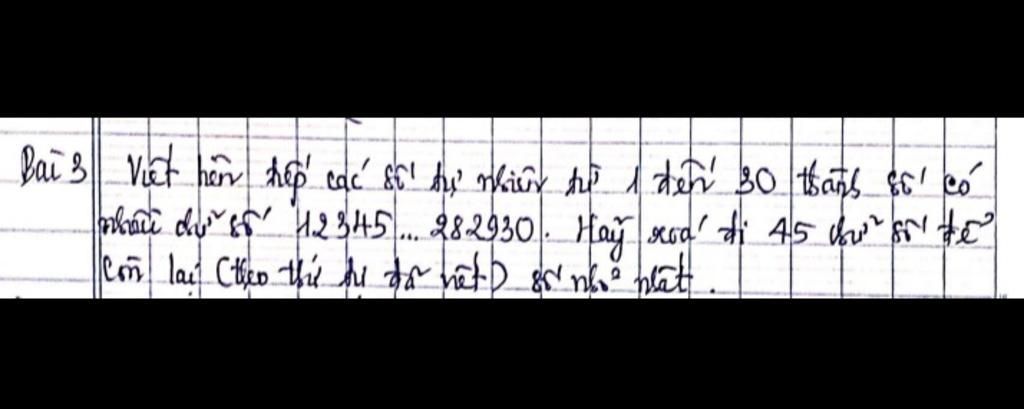 Bài 3 Viết liên tiếp các số tự nhiên từ 1 đến 30 thành số có
nhiều chữ số 12345...282930. Hãy xoá đi 45 chữ số để
còn lại (theo thứ tự đã viết) số nhỏ nhất.